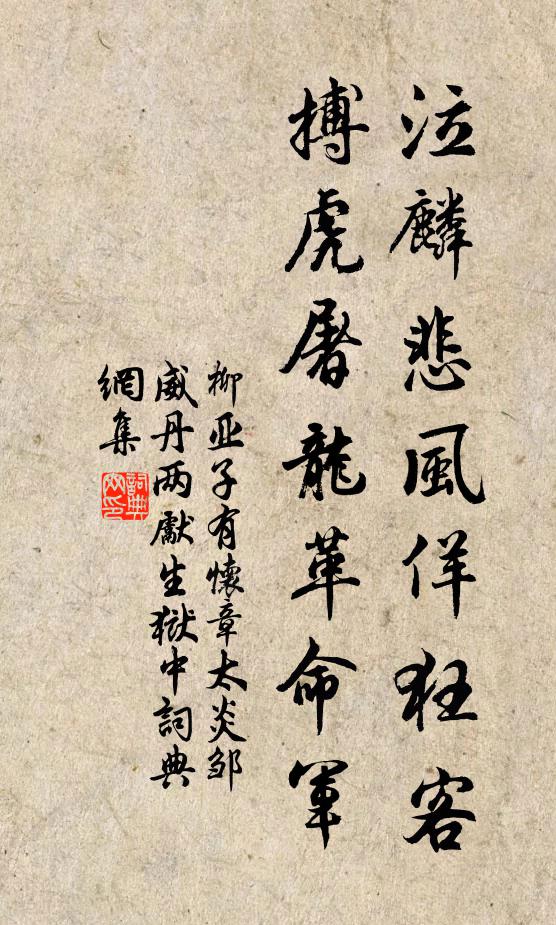 泣麟悲風佯狂客
搏虎屠龍革命軍
柳亚子有懷章太炎邹
威丹两獻生獄中詞典
網集
詞典
网印